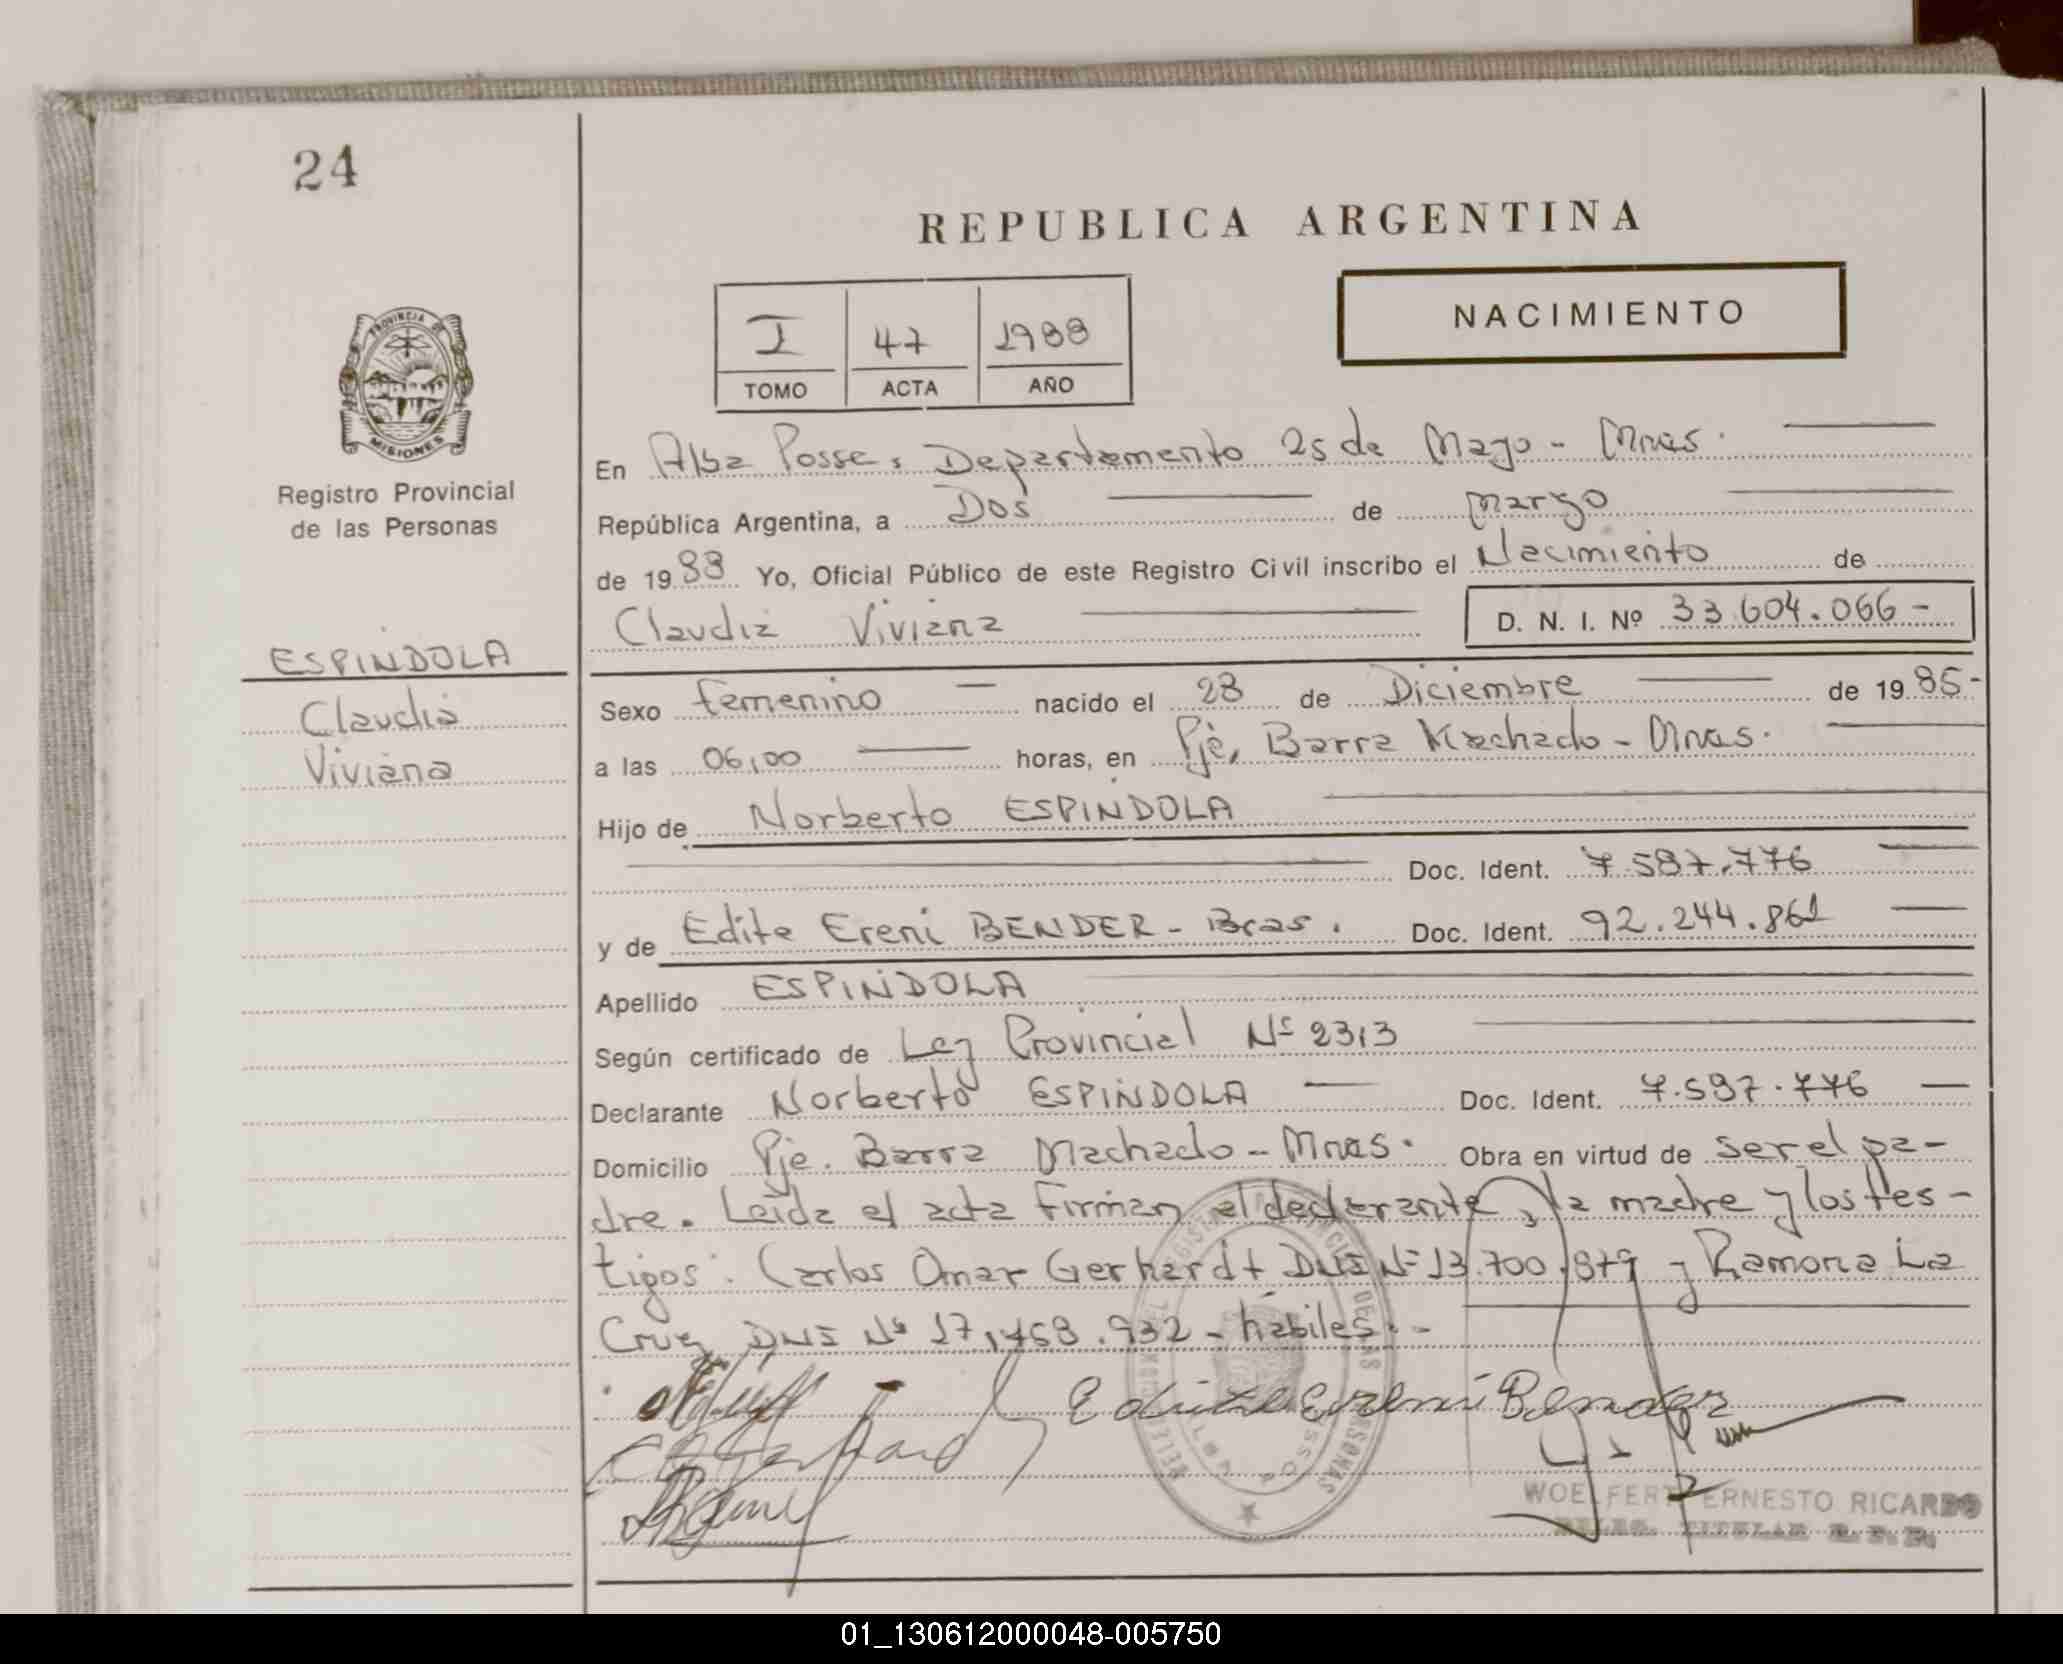 24
REPUBLICA ARGENTINA
I 47 1988
TOMO ACTA AÑO
NACIMIENTO
PROVINCIA DE
MISIONES
Registro Provincial
de las Personas
ESPINDOLA
Claudia
Viviana
En Alba Posse, Departamento 25 de Mayo - Mnes.
República Argentina, a Dos de Marzo
de 1988 Yo, Oficial Público de este Registro Civil inscribo el Nacimiento de
Claudia Viviana D. N. I. Nº 33.604.066 -
Sexo femenino nacido el 28 de Diciembre de 1985-
a las 06,00 horas, en Pje. Barra Machado - Mnes.
Hijo de Norberto ESPINDOLA
Doc. Ident. 7.587.776
y de Edite Ereni BENDER - Bras. Doc. Ident. 92.244.861
Apellido ESPINDOLA
Según certificado de Ley Provincial Nº 2313
Declarante Norberto ESPINDOLA Doc. Ident. 7.587.776
Domicilio Pje. Barra Machado - Mnes. Obra en virtud de ser el pa-
dre. Leída el acta firman el declarante, la madre y los tes-
tigos: Carlos Omar Gerhardt DNI Nº 13.700.879 y Ramona La
Cruz DNI Nº 17,468.932 - hábiles.-
Edite Ereni Bender
WOELFERT ERNESTO RICARDO
DELEG. TITULAR R. P. P.
01_130612000048-005750